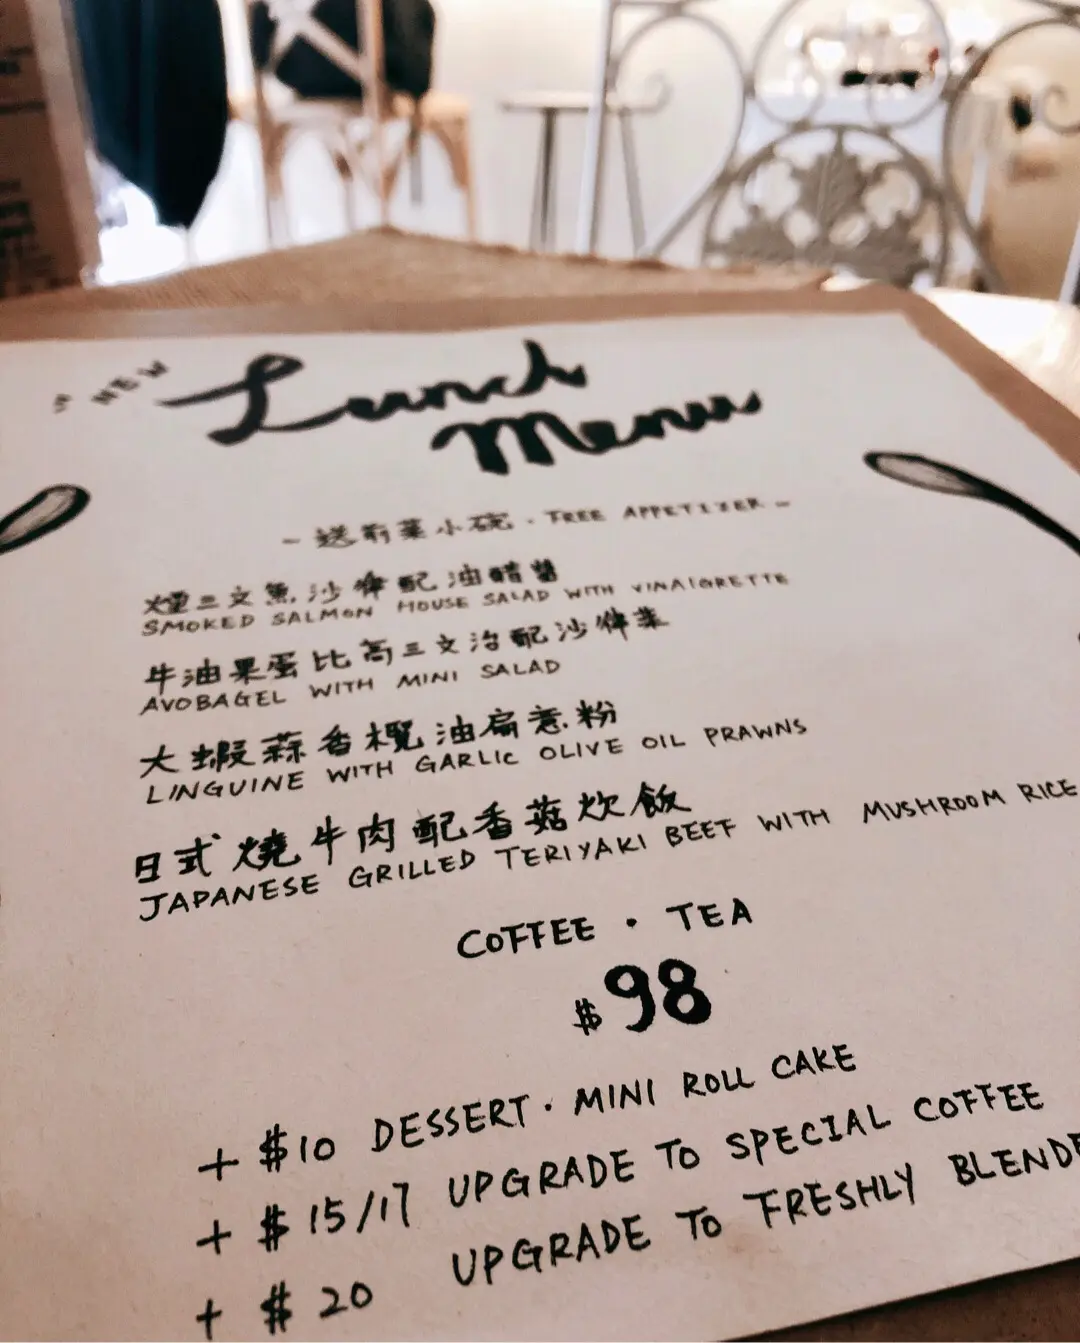 NEW
Lunch
Menu
~ 送前菜小碗 · FREE APPETIZER ~
煙三文魚沙律配油醋醬
SMOKED SALMON HOUSE SALAD WITH VINAIGRETTE
牛油果蛋比高三文治配沙律菜
AVOBAGEL WITH MINI SALAD
大蝦蒜香欖油扁意粉
LINGUINE WITH GARLIC OLIVE OIL PRAWNS
日式燒牛肉配香菇炊飯
JAPANESE GRILLED TERIYAKI BEEF WITH MUSHROOM RICE
COFFEE · TEA
$98
+ $10 DESSERT · MINI ROLL CAKE
+ $15/17 UPGRADE TO SPECIAL COFFEE
+ $20 UPGRADE TO FRESHLY BLENDE